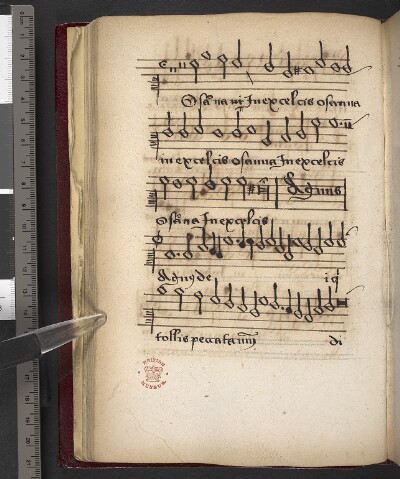 Osanna in Inexcelcis osanna
in excelcis osanna Inexcelcis
Agnus
Osana Inexcelcis
Agnus de
tollis peccata di
BRITISH MUSEUM